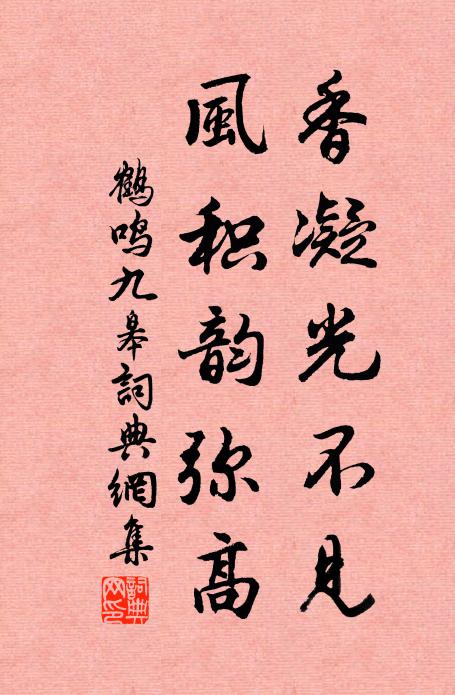 香凝光不見
風积韵弥高
鶴鳴九皋詞典網集
詞典
网印